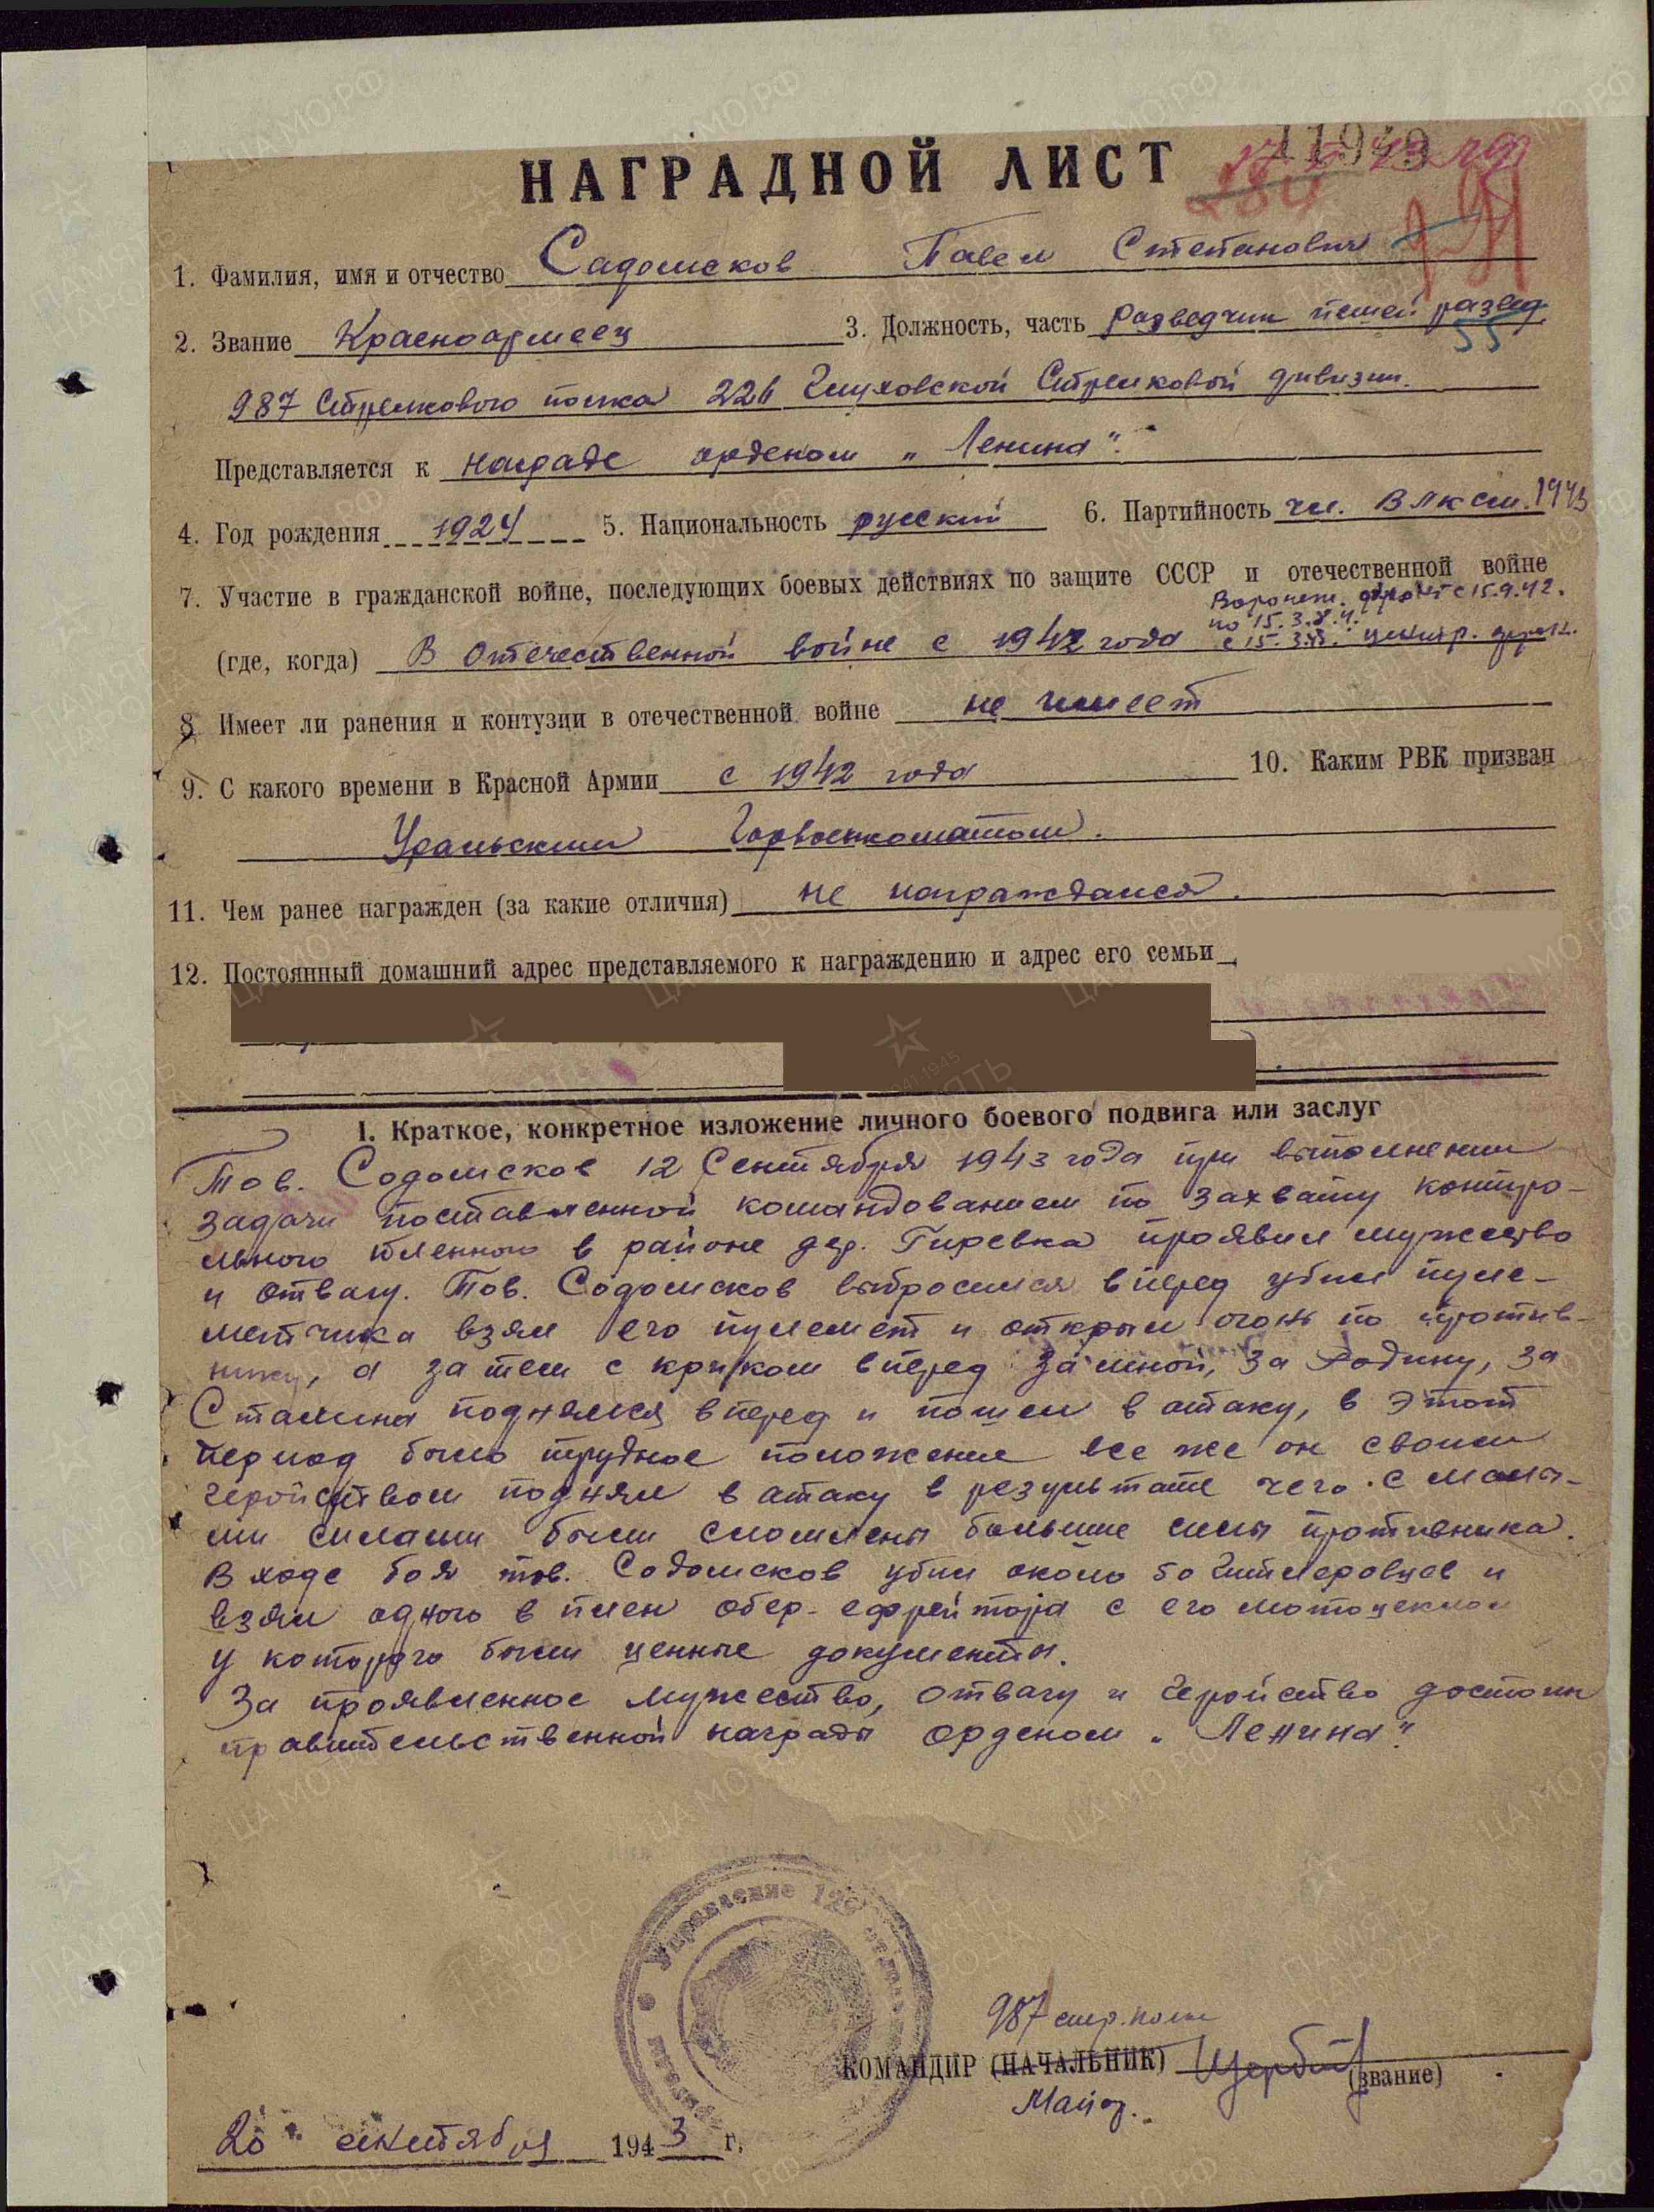 11949
НАГРАДНОЙ ЛИСТ
1. Фамилия, имя и отчество Садомсков Павел Степанович
2. Звание Красноармеец 3. Должность, часть разведчик пешей развед
55
987 Стрелкового полка 226 Глуховской Стрелковой дивизии.
Представляется к награде орденом „Ленина".
4. Год рождения 1924 5. Национальность русский 6. Партийность чл. ВЛКСМ. 1943
7. Участие в гражданской войне, последующих боевых действиях по защите СССР и отечественной войне
Воронеж. фронт с 15.9.42.
по 15.3.
(где, когда) В Отечественной войне с 1942 года с 15.3. центр. фронт.
8 Имеет ли ранения и контузии в отечественной войне не имеет
9. С какого времени в Красной Армии с 1942 года 10. Каким РВК призван
Уральским Горвоенкоматом.
11. Чем ранее награжден (за какие отличия) не награждался.
12. Постоянный домашний адрес представляемого к награждению и адрес его семьи
I. Краткое, конкретное изложение личного боевого подвига или заслуг
Тов. Содомсков 12 Сентября 1943 года при выполнении
задачи поставленной командованием по захвату контро-
льного пленного в районе дер. Гиревка проявил мужество
и отвагу. Тов. Содомсков выбросился вперед убил пуле-
метчика взял его пулемет и открыл огонь по против-
нику, а затем с криком вперед за мной, за Родину, за
Сталина поднялся вперед и пошел в атаку, в этот
период было трудное положение все же он своим
геройством поднял в атаку в результате чего с малы-
ми силами были сломлены большие силы противника.
В ходе боя тов. Содомсков убил около 50 Гитлеровцев и
взял одного в плен обер-ефрейтора с его мотоциклом
у которого были ценные документы.
За проявленное мужество, отвагу и геройство достоин
правительственной награды орденом „Ленина".
Управление
987 стр. полка
КОМАНДИР (НАЧАЛЬНИК)
(звание)
Майор.
20 сентября 1943 г.